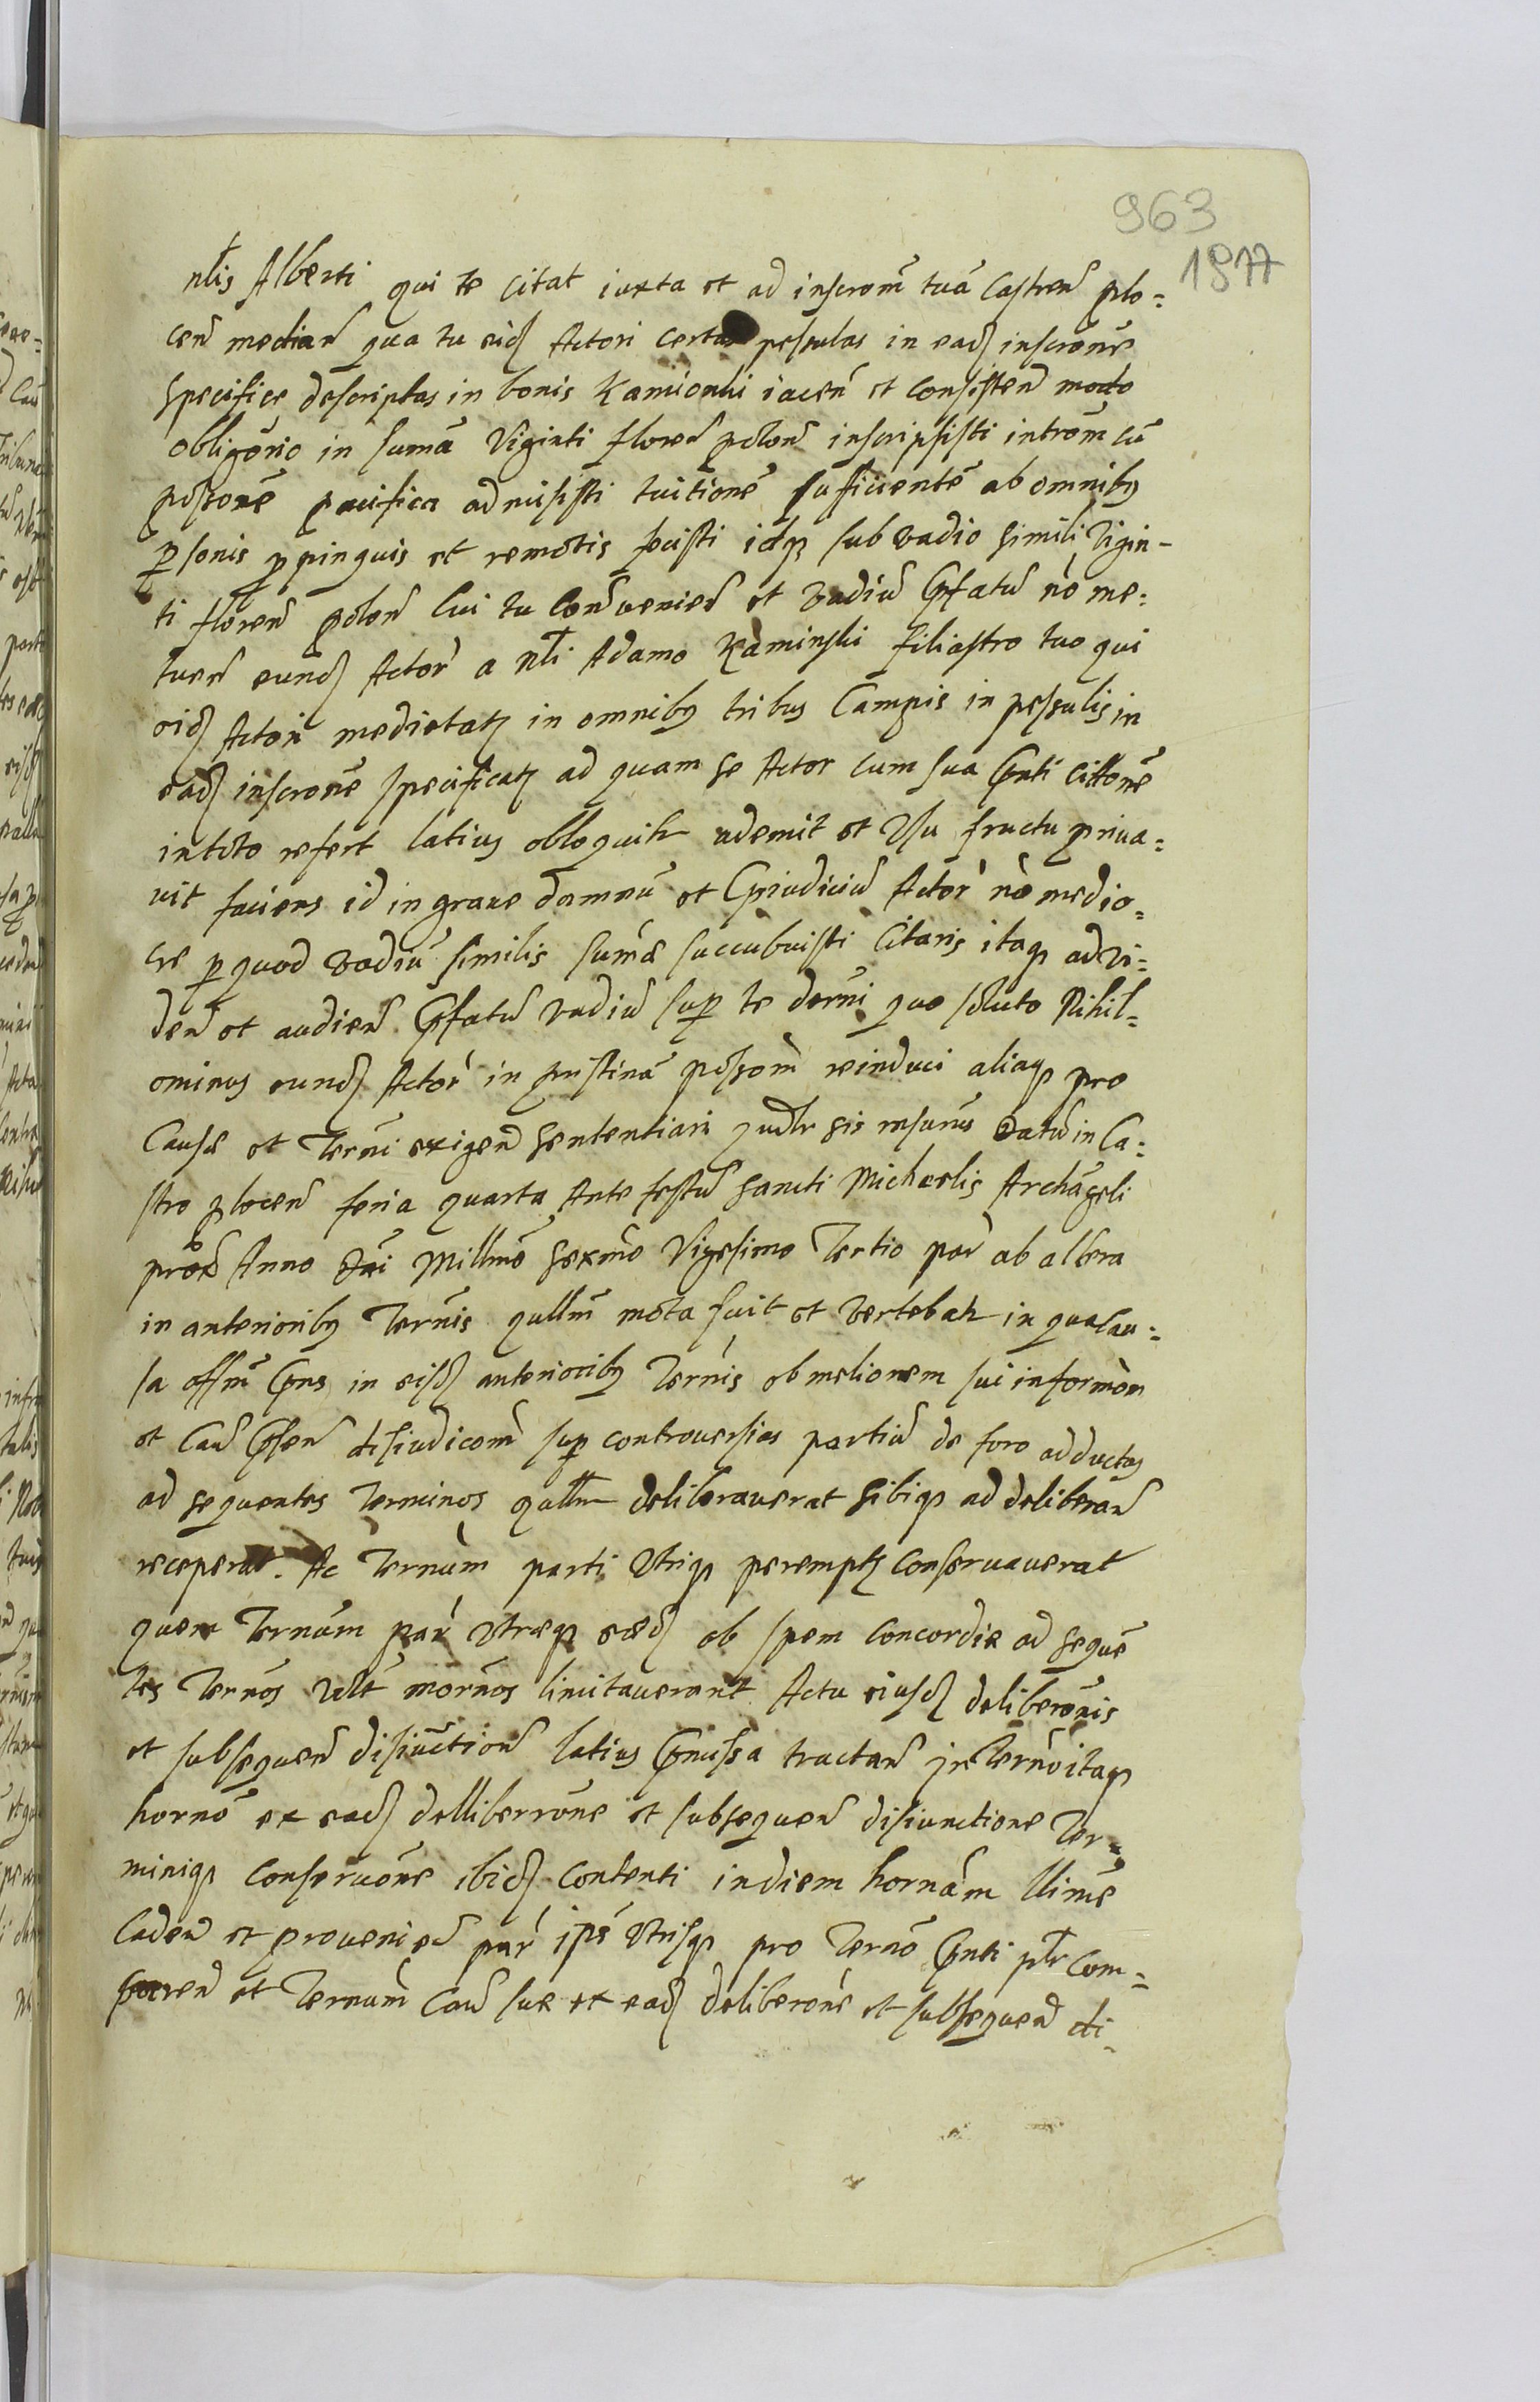 963
1877
nłis Alberti qui te citat iuxta et ad inscrom̃ tuã Castren̄ plo=
cen̄ median̄ qua tu eid Actori certas pessulas in ead inscrone
specifice descriptas in bonis Kamionki iacen̄ et consisten̄ modo
obligorio in sumã Viginti floren̄ polon̄ inscripsisti introm̃ cũ
possone pacifica admisisti tuitionẽ sufficientẽ ab omnibꝰ
ꝑsonis ꝓpinquis et remotis fecisti idqꝫ sub vadio simili Vigin-
ti floren̄ polon̄ Cui tu Con̄uenien̄ et vadiũ Prfatũ nõ me=
tuen̄ eund Actor̃ a nłi Adamo Kaminski filiastro tuo qui
eid Actori medietatꝫ in omnibꝰ tribus Campis in pessulis in
ead inscrone specificatꝫ ad quam se Actor cum sua Prnti cittone
in toto refert latius obloquitr ademit et Vsu fructu priua=
uit faciens id in graue damnũ et Priudiciũ Actor̃ nõ medio=
cre ꝑ quod vadiũ similis sumæ succubuisti Citaris itaqꝫ ad vi=
den̄ et audien̄ Prfatũ vadiũ suꝑ te decerni quo soluto Nihil=
ominus eund Actor̃ in pristinã possom̃ reinduci aliaqꝫ pro
Causæ et Terni exigen̄ sententiari iudlr sis rnsurus Datũ in Ca=
stro plocen̄ feria quarta Ante festũ Sancti Michaelis Archãgeli
prox̃ Anno Dni Millmõ Sexmõ Vigesimo Tertio par ab altera
in anterioribꝰ Ternis qullm̃ mota fuit et vertebatr in qua Cau=
sa offm̃ Prns in eisd anterioribꝰ Ternis ob meliorem sui informom
et Cau Prsen̄ disiudicom̃ suꝑ controuersias partiũ de foro adductas
ad sequentes Terminos qullm deliberauerat sibiqꝫ ad deliberan̄
receperat. Ac Ternum parti Vtriqꝫ peremptꝫ conseruauerat
quem Ternum par Vtraqꝫ ead ob spem Concordiæ ad sequẽ
tes Ternos mornos limitauerant Actu eiusd deliberonis
et subsequen̄ disiunction̄ latius Prmissa tractan̄ In Terno itaqꝫ
horno ex ead delliberrone et subsequen̄ disiunctione Ter=
miniqꝫ conseruone ibid contenti in diem hornam llime
Caden̄ et prouenien̄ par ipẽ Vtrisqꝫ pro Terno Prnti płr com=
paren̄ et Ternum Cau suæ ex ead deliberone et subsequen̄ di=